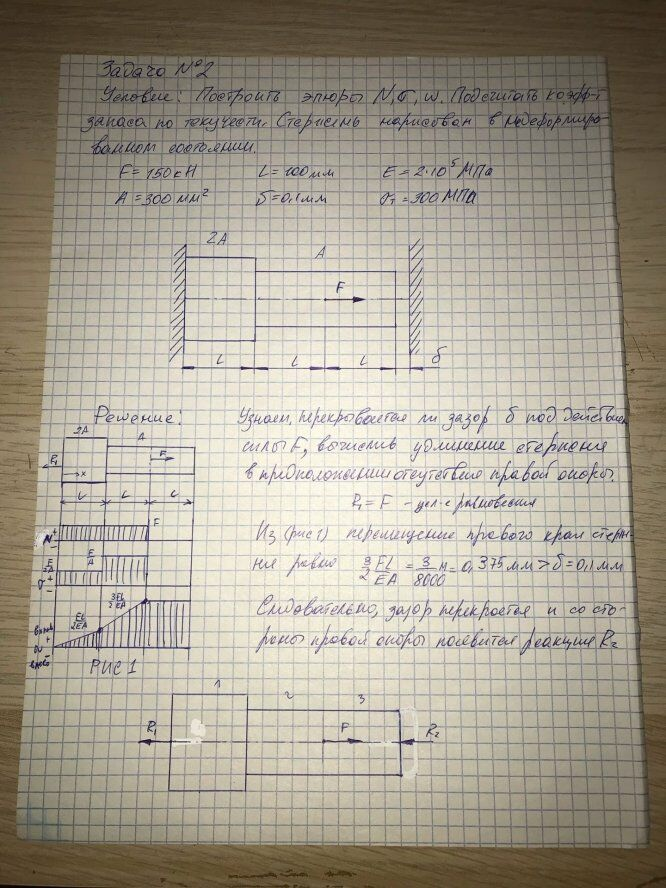 Задача №2
Условие: Построить эпюры N, σ, w. Подсчитать коэфф-т
запаса по текучести. Стержень нарисован в недеформиро-
ванном состоянии.
F=150кН L=100мм E=2·10⁵МПа
A=300мм² δ=0,1мм σт=300МПа
2A
A
F
L L L δ
Решение:
Узнаем, перекрывается ли зазор δ под действием
силы F, вычислив удлинение стержня
в предположении отсутствия правой опоры.
R₁=F - усл-е равновесия
Из (рис1) перемещение правого края стерж-
ня равно 3/2 FL/EA = 3/8000 м = 0,375мм > δ=0,1мм
Следовательно, зазор перекроется и со сто-
роны правой опоры появится реакция R₂
2A
A
R₁
x
F
L L L
N + -
F
σ + -
F/2A
F/A
FL/2EA
3FL/2EA
РИС 1
1 2 3
R₁ F R₂